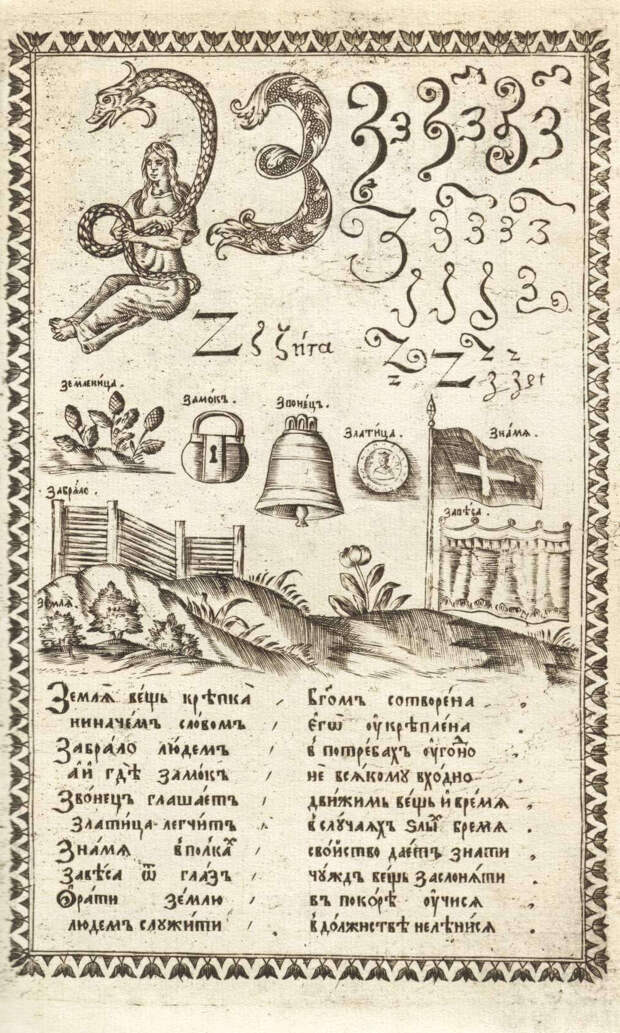 З З З з З з З з
З з з з з
Z ζ ζήτα
Z z Z z z
Землѧница.
Замо́къ.
Звоне́цъ.
Златица.
Зна́мѧ.
Забра́ло.
Завѣ́са.
Землѧ̀.
Землѧ̀ ве́щь крѣ́пка , Бг҃омъ сотворе́на .
ниначе́мъ сло́вомъ , єгѡ̀ ѹкрѣпле́на .
Забра́ло лю́демъ , в потре́бахъ ѹго́дно .
а҆́и҆ гдѣ̀ замо́къ , не всѧ́кому вхо́дно .
Звоне́цъ глаша́етъ , дви́жимь ве́щь и҆ вре́мѧ ,
Златица легчи́тъ , в слу́чаѧхъ ѕлы́х бре́мѧ .
Зна́мѧ в полка́х , сво́йство дае́тъ зна́ти .
Завѣ́са ѿ гла́зъ , чу́ждъ ве́щь заслонѧ́ти .
Ѻра́ти зе́млю , въ поко́рѣ ѹчи́сѧ .
лю́демъ служи́ти , в до́лжнствѣ нелѣни́сѧ .